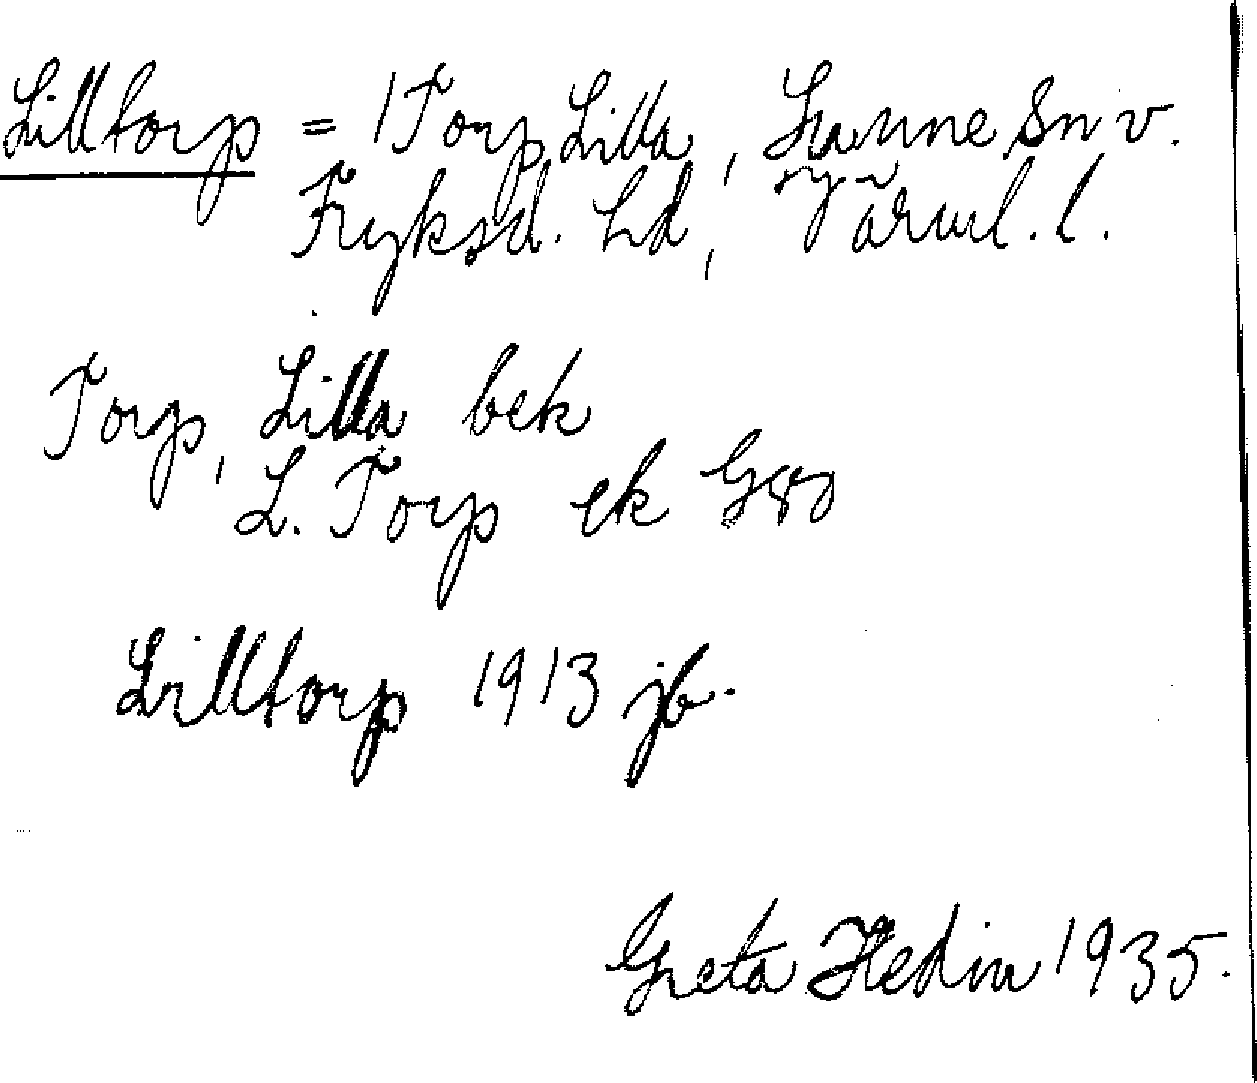 Lilltorp = /Torp Lilla, Sunne Sn v.
Fryksd. hd, Värml. l.
Torp, Lilla bek
L. Torp ek G80
Lilltorp 1913 jb.
Greta Hedin 1935.